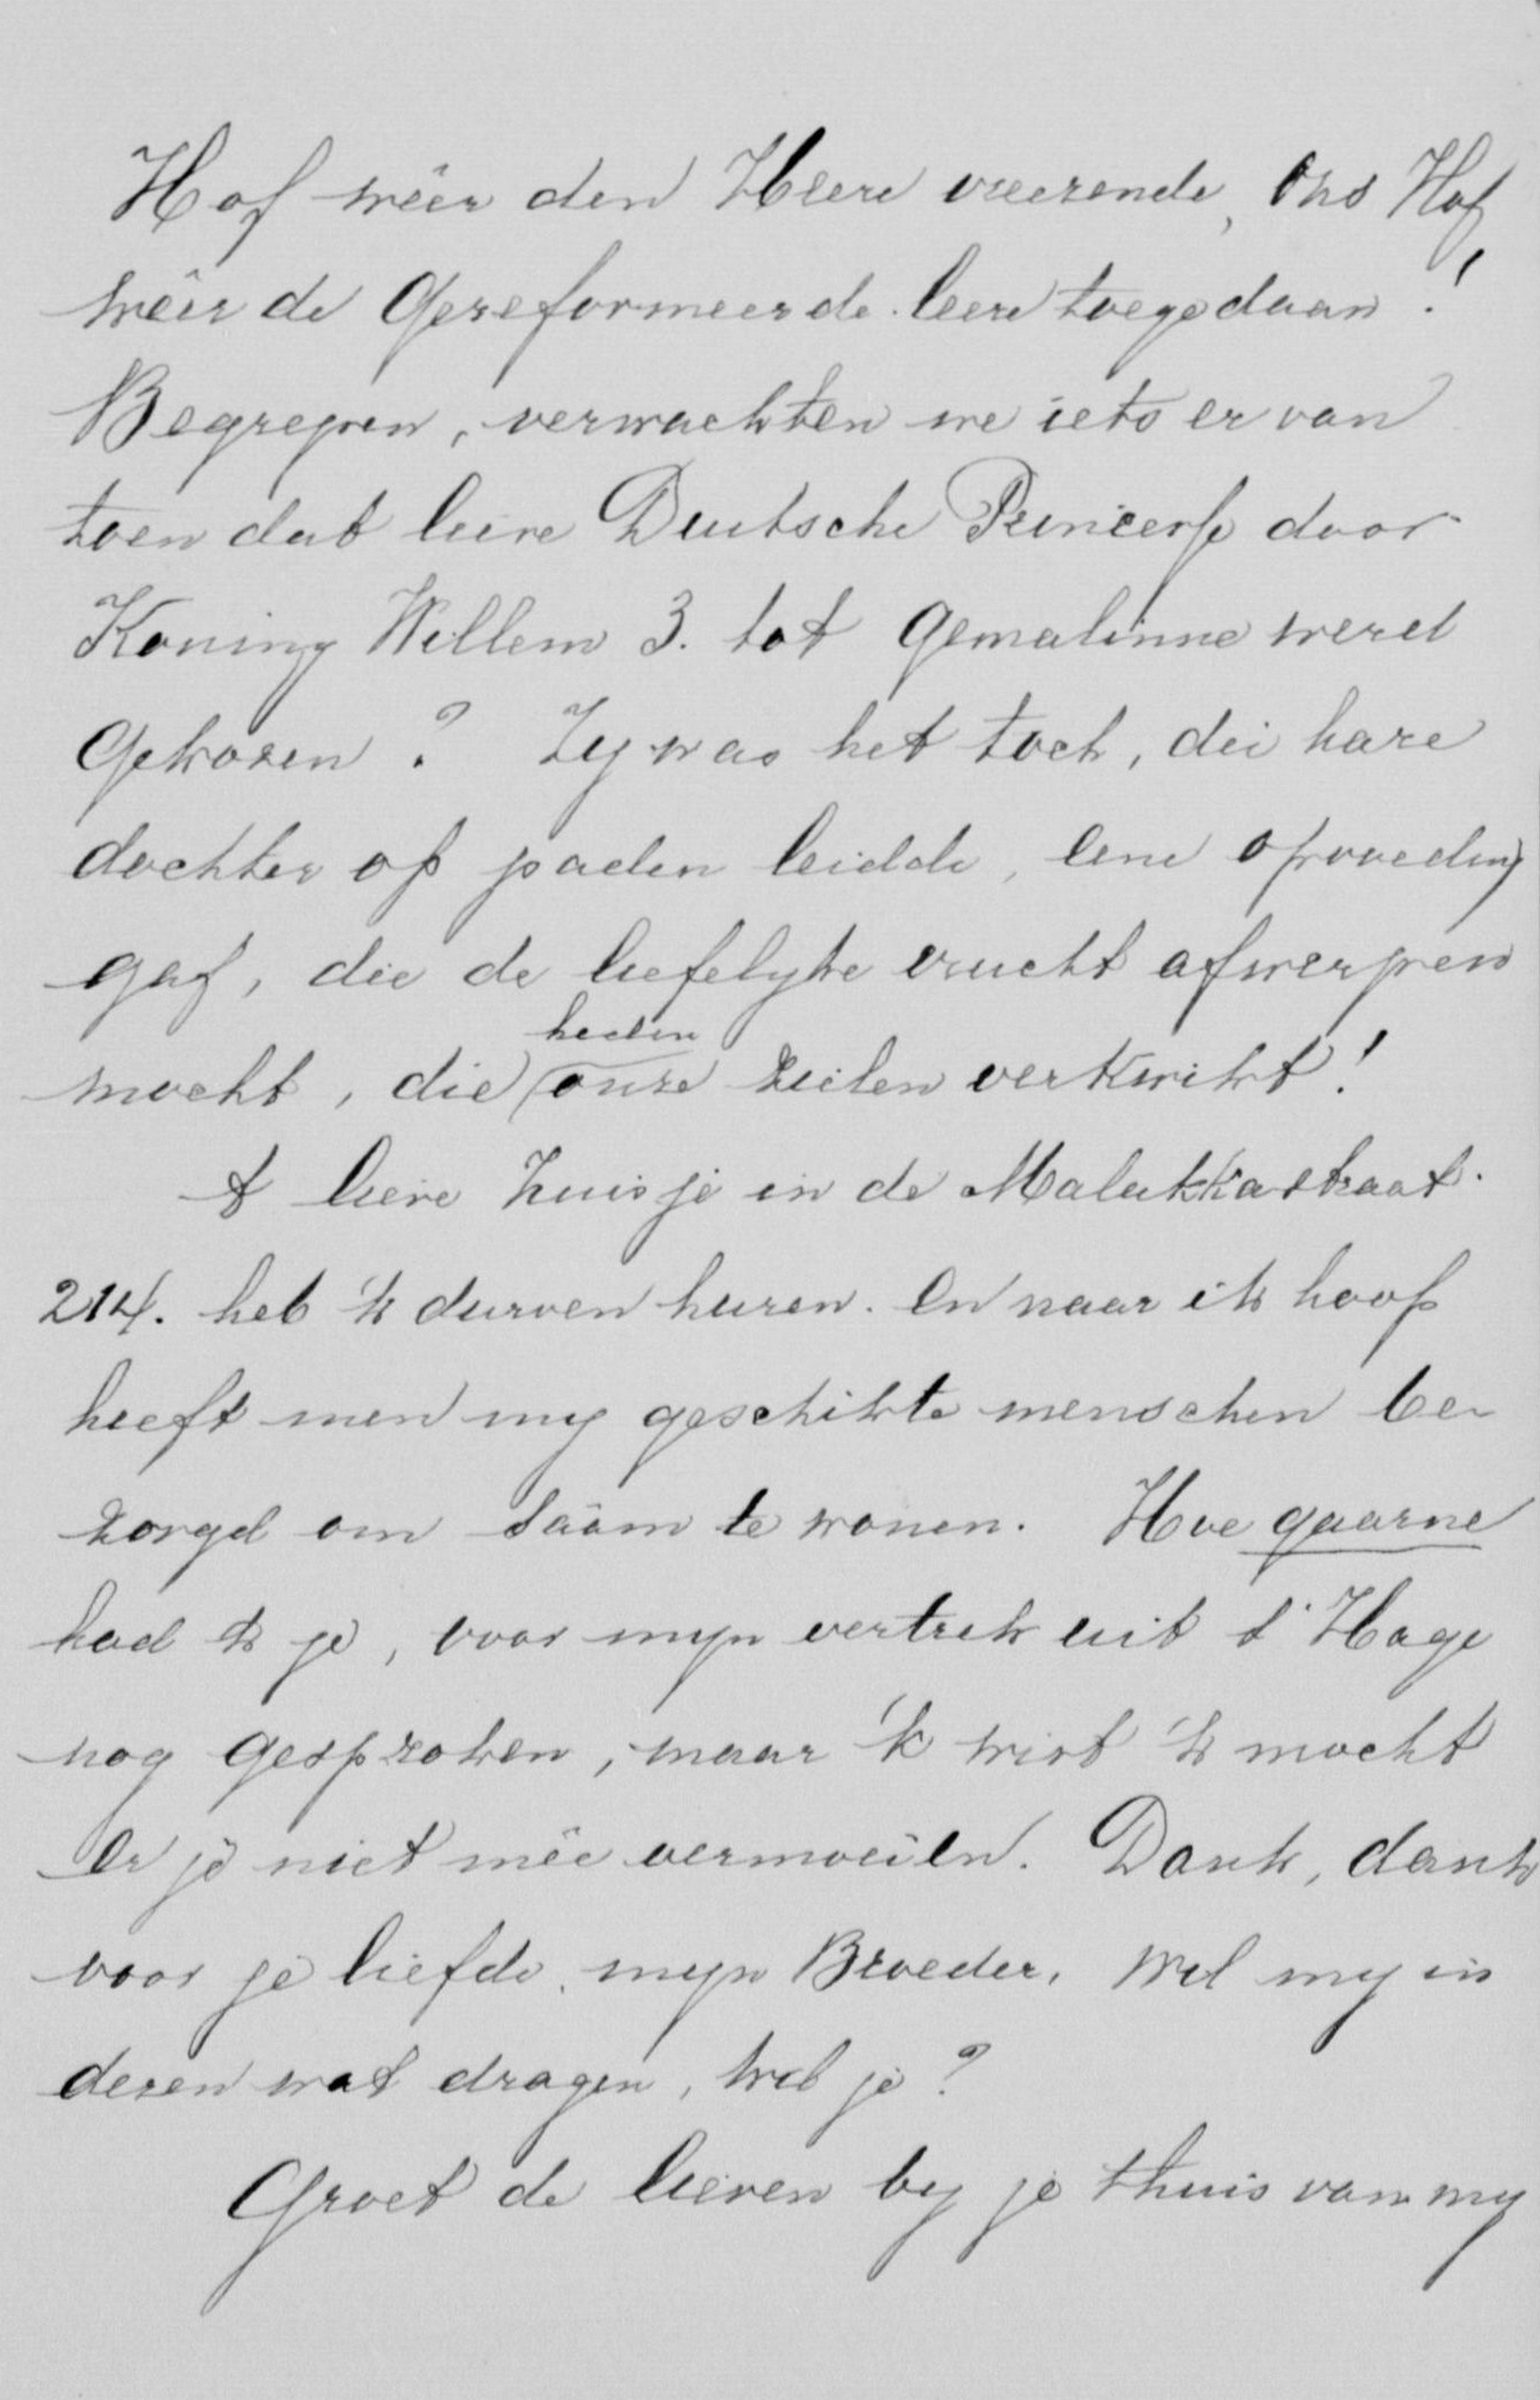 Hof wêer den Heere vreezende, Ons Hof
wêer de Gereformeerde leere toegedaan!
Begrepen, verwachtten we iets er van
toen dat lieve Duitsche Princesse door
Koning Willem 3. tot Gemalinne werd
Gekozen? Zy was het toch, die hare
dochter op paden leidde, eene opvoeding
gaf, die de liefelyke vrucht afwerpen
mocht, die heden onze zielen verkwikt!
't lieve huisje in de Malakkastraat.
214. heb 'k durven huren. En naar ik hoop
heeft men my geschikte menschen be-
zorgd om sâam te wonen. Hoe gaarne
had 'k je, voor myn vertrek uit 's Hage
nog gesproken, maar 'k wist 'k mocht
er je niet mêe vermoeien. Dank, dank
voor je liefde, myn Broeder. Wil my in
dezen wat dragen, wil je?
Groet de lieven by je thuis van my